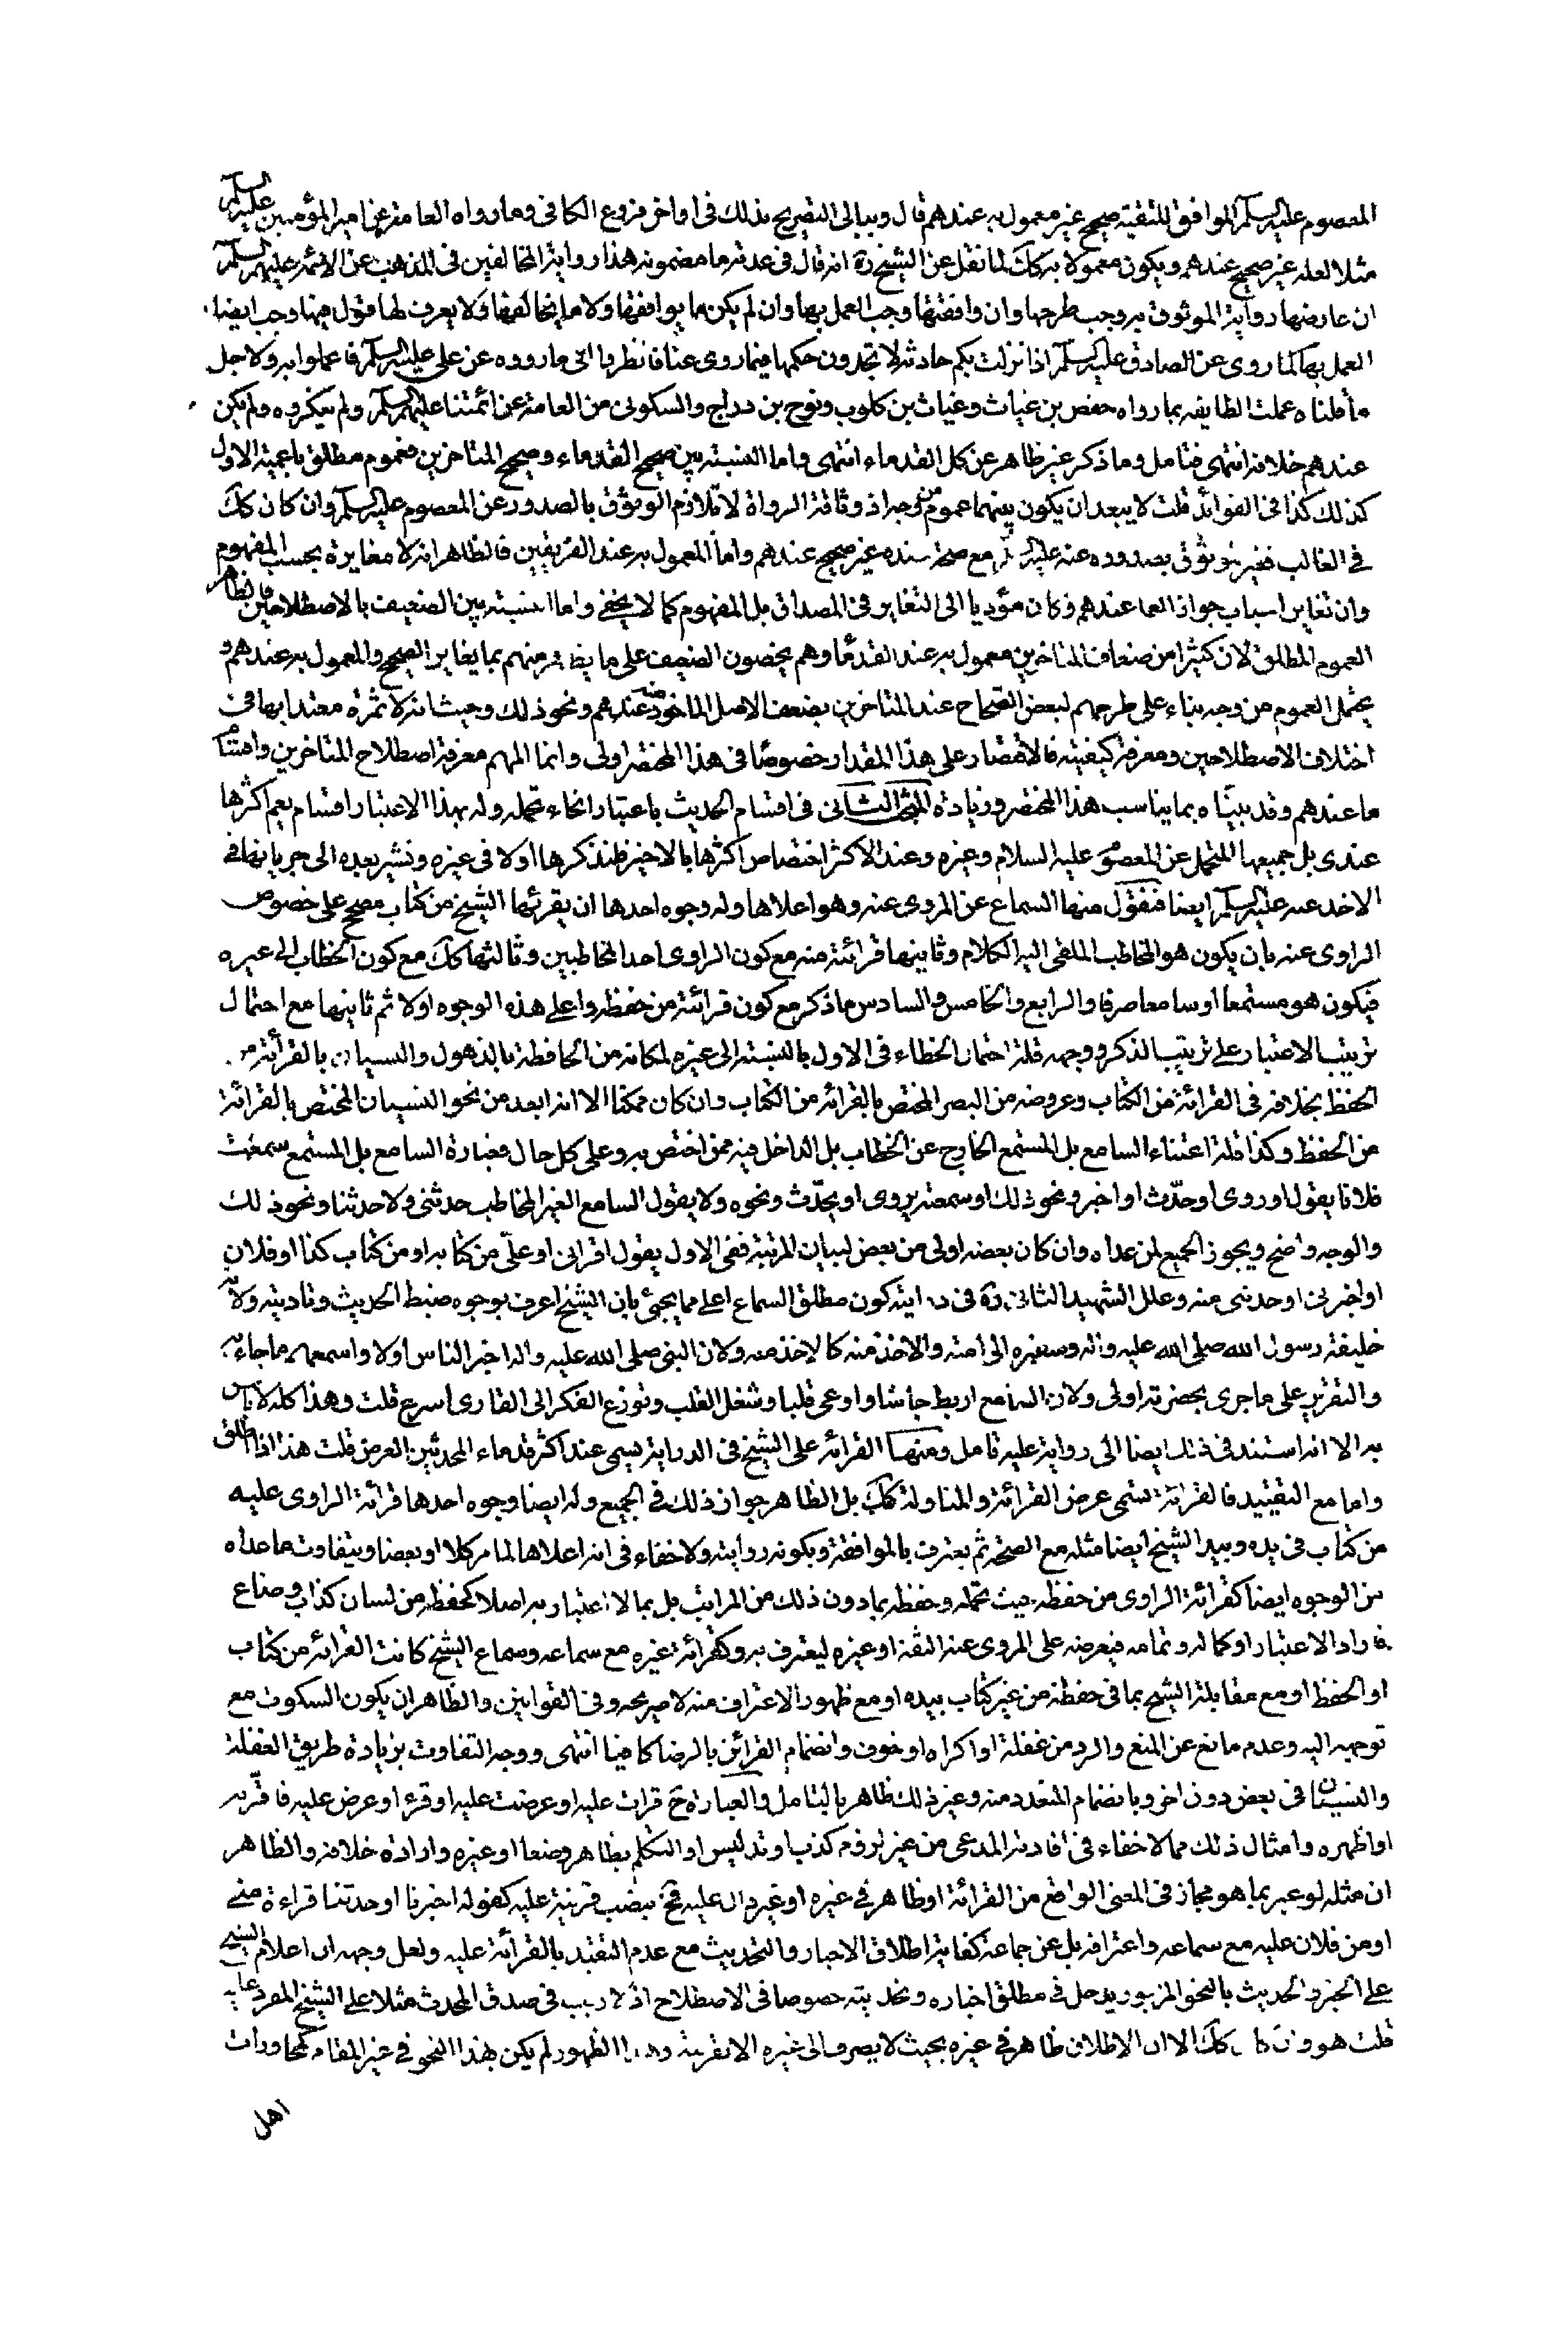 المعصوم عليه السلم الموافق للتقية صحيح غير معمول به عندهم قال وببالى التصريح بذلك فى اواخر فروع الكافى وما رواه العامة عن امير المؤمنين عليه السلم
مثلا لعله غير صحيح عندهم ويكون معمولا به كك لما نقل عن الشيخ ره انه قال فى عدته ما مضمونه هذا رواية المخالفين فى المذهب عن الائمة عليهم السلم
ان عارضها رواية الموثوق به وجب طرحها وان وافقتها وجب العمل بها وان لم يكن ما يوافقها ولا ما يخالفها ولا يعرف لها قول فيها وجب ايضا
العمل بها لما روى عن الصادق عليه السلم اذا نزلت بكم حادثة لا تجدون حكمها فيما روى عنا فانظر با الى ما رووه عن على عليه السلم فاعملوا به ولاجل
ما قلناه عملت الطايفه بما رواه حفص بن غياث وغياث بن كلوب ونوح بن دراج والسكونى من العامة عن ائمتنا عليهم السلم ولم ينكروه ولم يكن
عندهم خلافه انتهى فتامل وما ذكر غير ظاهر عن كل القدماء انتهى واما النسبة بين صحيح القدماء وصحيح المتاخرين فعموم مطلق باعمية الاول
كذلك كذا فى الفوائد قلت لا يبعد ان يكون بينهما عموم من وجه اذ وثاقة الرواة لا تلازم الوثوق بالصدور عن المعصوم عليه السلم وان كان كك
فى الغالب فغير موثوق بصدوره عنه عليه مع صحة سنده غير صحيح عندهم واما المعمول به عند الفريقين فالظاهر انه لا مغايرة بحسب المفهوم
وان تغاير اسباب جواز العمل عندهم وكان مؤديا الى التغاير فى المصداق بل المفهوم كما لا يخفى واما النسبة بين الضعيف بالاصطلاحين فالظاهر
العموم المطلق لان كثيرا من ضعاف المتاخرين معمول به عند القدماء وهم يخصون الضعيف على ما يظهر منهم بما يغاير الصحيح والمعمول به عندهم و
يحتمل العموم من وجه بناء على طرحهم لبعض الصحاح عند المتاخرين بضعف الاصل الماخوذ منه عندهم ونحو ذلك وحيث انه لا ثمرة معتدا بها فى
اختلاف الاصطلاحين ومعرفة كيفيته فالاقتصار على هذا المقدار خصوصا فى هذا المختصر اولى وانما المهم معرفة اصطلاح المتاخرين واقسام
ما عندهم وقد بيناه بما يناسب هذا المختصر وزيادة المبحث الثانى فى اقسام الحديث باعتبار انحاء تحمله وله بهذا الاعتبار اقسام يعم اكثرها
عندى بل جميعها المتحمل عن المعصوم عليه السلام وغيره وعند الاكثر اختصاص اكثرها بالاخير فلنذكرها اولا فى غيره ونشير بعده الى جريانها فى
الاخذ عنه عليه السلم ايضا فنقول منها السماع عن المروى عنه وهو اعلاها وله وجوه احدها ان يقرئها الشيخ من كتاب مصحح على خصوص
الراوى عنه بان يكون هو المخاطب الملقى اليه الكلام وثانيها قرائته منه مع كون الراوى احد المخاطبين وثالثها كك مع كون الخطاب الى غيره
فيكون هو مستمعا او سامعا صرفا والرابع والخامس والسادس ما ذكر مع كون قرائته من حفظه واعلى هذه الوجوه اولا ثم ثانيها مع احتمال
ترتيب الاعتبار على ترتيب الذكر ووجهه قلة احتمال الخطاء فى الاول بالنسبة الى غيره لمكانه من الحافظة بالذهول والنسيان بالقرائة من
الحفظ بخلافه فى القرائة من الكتاب وعروضه من البصر المختص بالقرائة من الكتاب وان كان ممكنا الا انه ابعد من نحو النسيان المختص بالقرائة
من الحفظ وكذا قلة اعتناء السامع بل المستمع الخارج عن الخطاب بل الداخل فيه ممن اختص به وعلى كل حال فعبارة السامع بل المستمع سمعت
فلانا يقول او روى او حدّث او اخبر ونحو ذلك او سمعته يروى او يحدّث ونحوه ولا يقول السامع الغير المخاطب حدثنى ولا حدثنا ونحو ذلك
والوجه واضح ويجوز الجميع لمن عداه وان كان بعضه اولى من بعض لبيان المرتبة ففى الاول يقول اقرانى او علىّ من كتابه او من كتاب كذا او فلان
او اخبرنى او حدثنى منه وعلل الشهيد الثانى ره فى درايته كون مطلق السماع اعلى مما يجئ بان الشيخ اعرف بوجوه ضبط الحديث وتاديته ولانه
خليفة رسول الله صلى الله عليه واله وسفيره الى امته والاخذ منه كالاخذ منه ولان النبى صلى الله عليه واله اخبر الناس اولا واسمعهم ما جاء به
والتقرير على ما جرى بحضرته اولى ولان السامع اربط جاشا واوعى قلبا وشغل القلب وتوزع الفكر الى القارى اسرع قلت وهذا كله لا باس
به الا انه استند فى ذلك ايضا الى رواية عليه تامل ومنها القرائة على الشيخ فى الدراية تسمى عند اكثر قدماء المحدثين العرض قلت هذا اذا اطلق
واما مع التقييد فالقرائة تسمى عرض القرائة والمناولة كك بل الظاهر جواز ذلك فى الجميع وله ايضا وجوه احدها قرائة الراوى عليه
من كتاب فى يده وبيد الشيخ ايضا مثله مع الصحة ثم يعترف بالموافقة وبكونه روايته ولا خفاء فى انه اعلاها لما مر كلا او بعضا ويتفاوت ما عداه
من الوجوه ايضا كقرائة الراوى من حفظه حيث تحمله وحفظه بما دون ذلك من المراتب بل بما لا اعتبار به اصلا كحفظه من لسان كذاب وضاع
فاراد الاعتبار او كماله وتمامه فيعرضه على المروى عنه الثقة او غيره ليعترف به وكقرائة غيره مع سماعه وسماع الشيخ كانت القرائة من كتاب
او الحفظ او مع مقابلة الشيخ بما فى حفظه من غير كتاب بيده او مع ظهور الاعتراف منه لا صريحه وفى القوانين والظاهر ان يكون السكوت مع
توجهه اليه وعدم مانع عن المنع والرد من غفلة او اكراه او خوف وانضمام القرائن بالرضا كافيا انتهى ووجه التفاوت بزيادة طريق الغفلة
والنسيان فى بعض دون اخر وبانضمام المتعدد منه وغير ذلك ظاهر بالتامل والعباراة ح قرات عليه او عرضت عليه او قرء او عرض عليه فاقرّ به
او اظهره وامثال ذلك مما لا خفاء فى افادته المدعى من غير لزوم كذب او تدليس او التكلم بظاهر وضعا او غيره وارادة خلافه والظاهر
ان مثله لو عبر بما هو مجاز فى المعنى الواقع من القرائة او ظاهر فى غيره او غير دال عليه فح ينصب قرينة عليه كقوله اخبرنا او حدثنا قراءة منى
او من فلان عليه مع سماعه واعترافه بل عن جماعة كفاية اطلاق الاخبار والتحديث مع عدم التقيد بالقرائة عليه ولعل وجهه ان اعلام الشيخ
على الخبر الحديث بالنحو المزبور يدخل فى مطلق اخباره وتحديثه خصوصا فى الاصطلاح اذ لا ريب فى صدق المحدث مثلا على الشيخ المقرو عليه
قلت هو وان كان كك الا ان الاطلاق ظاهر فى غيره بحيث لا يصرف الى غيره الا بقرينة وهذا الظهور لم يكن بهذا النحو فى غير المقام كمحاورات
اهل